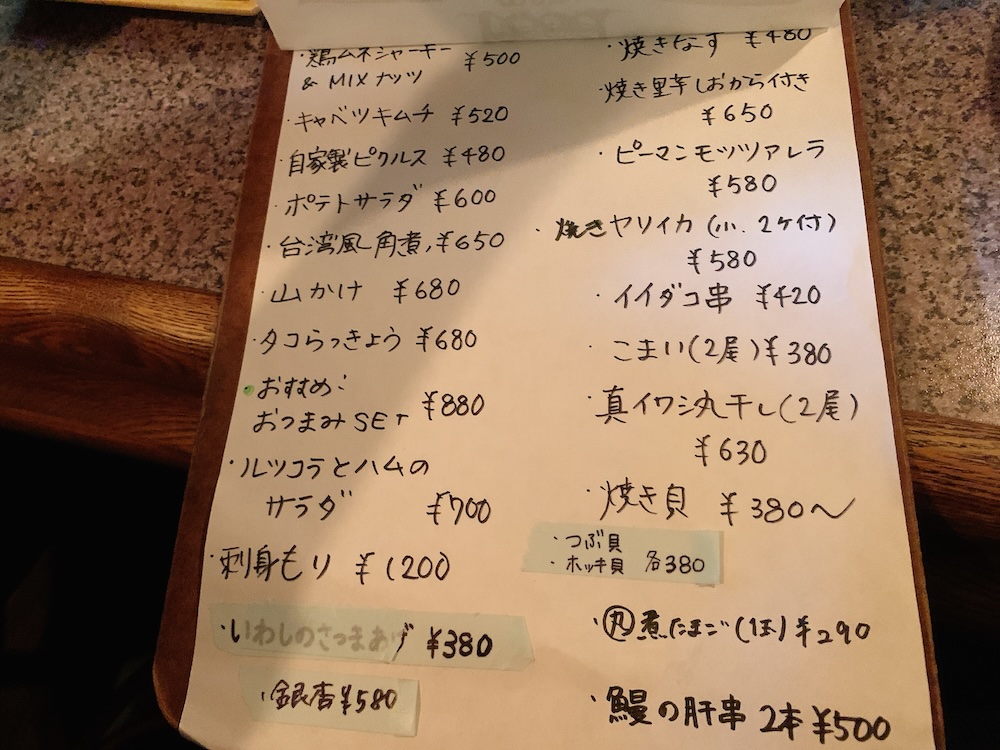 ・鶏ムネジャーキー ¥500
& MIXナッツ
・キャベツキムチ ¥520
・自家製ピクルス ¥480
・ポテトサラダ ¥600
・台湾風角煮 ¥650
・山かけ ¥680
・タコらっきょう ¥680
・おすすめ:
おつまみSET ¥880
・ルッコラとハムの
サラダ ¥700
・刺身もり ¥1200
・いわしのさつまあげ ¥380
・銀杏 ¥580
・焼きなす ¥480
・焼き里芋しおから付き
¥650
・ピーマンモッツァレラ
¥580
・焼きヤリイカ(小、2ケ付)
¥580
・イイダコ串 ¥420
・こまい(2尾) ¥380
・真イワシ丸干し(2尾)
¥630
・焼き貝 ¥380〜
・つぶ貝
・ホッキ貝 各380
・丸煮たまご(1玉) ¥290
・鰻の肝串 2本 ¥500